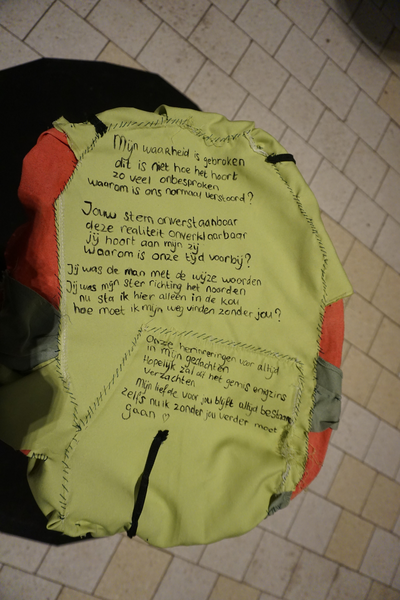 Mijn waarheid is gebroken
dit is niet hoe het hoort
zo veel onbesproken
waarom is ons normaal verstoord?
Jouw stem onverstaanbaar
deze realiteit onverklaarbaar
jij hoort aan mijn zij
waarom is onze tijd voorbij?
Jij was de man met de wijze woorden
Jij was mijn ster richting het noorden
nu sta ik hier alleen in de kou
hoe moet ik mijn weg vinden zonder jou?
Onze herinneringen voor altijd
in mijn gedachten
Hopelijk zal dit het gemis enigzins
verzachten
Mijn liefde voor jou blijft altijd bestaan
zelfs nu ik zonder jou verder moet
gaan ♡